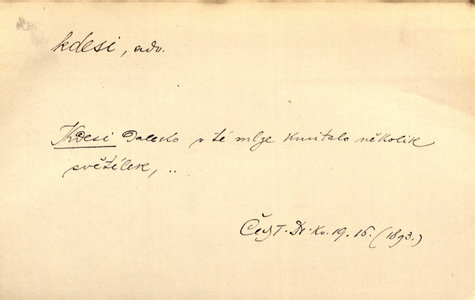 kdesi, adv.
Kdesi daleko v té mlze kmitalo několik
světélek, ..
Čes. T. Dr. Kv. 19. 16. (1893.)